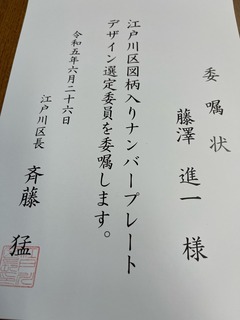 委嘱状
藤澤進一様
江戸川区図柄入りナンバープレート
デザイン選定委員を委嘱します。
令和五年六月二十六日
江戸川区長
斉藤猛